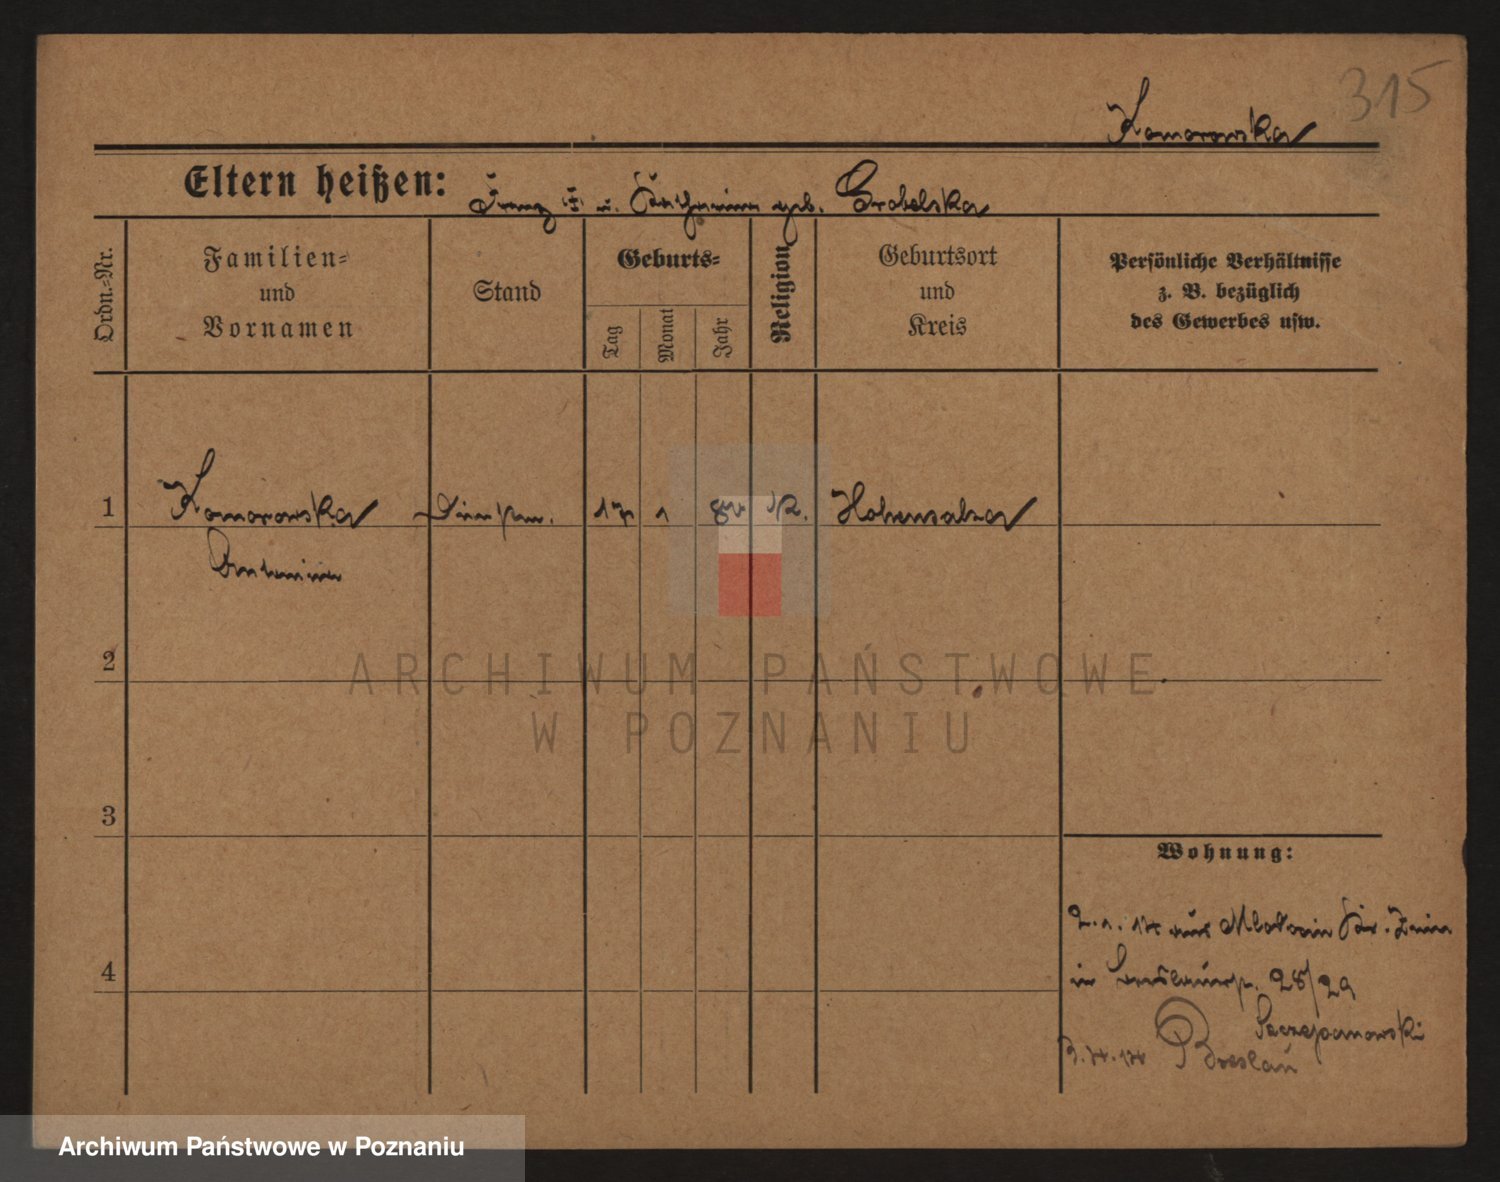 315
Komorowska
Eltern heißen: Franz u. Katharina geb. Grabelska
Ordn.=Nr.
Familien=
und
Vornamen
Stand
Geburts=
Tag
Monat
Jahr
Religion
Geburtsort
und
Kreis
Persönliche Verhältnisse
z. B. bezüglich
des Gewerbes usw.
1 Komorowska 17 1 K. Hohensalza
Antonina
2
3
4
Wohnung:
2. 1. 14 aus Kr. Znin
in 28/29
Szczepanowski
Breslau
ARCHIWUM PAŃSTWOWE
W POZNANIU
Archiwum Państwowe w Poznaniu